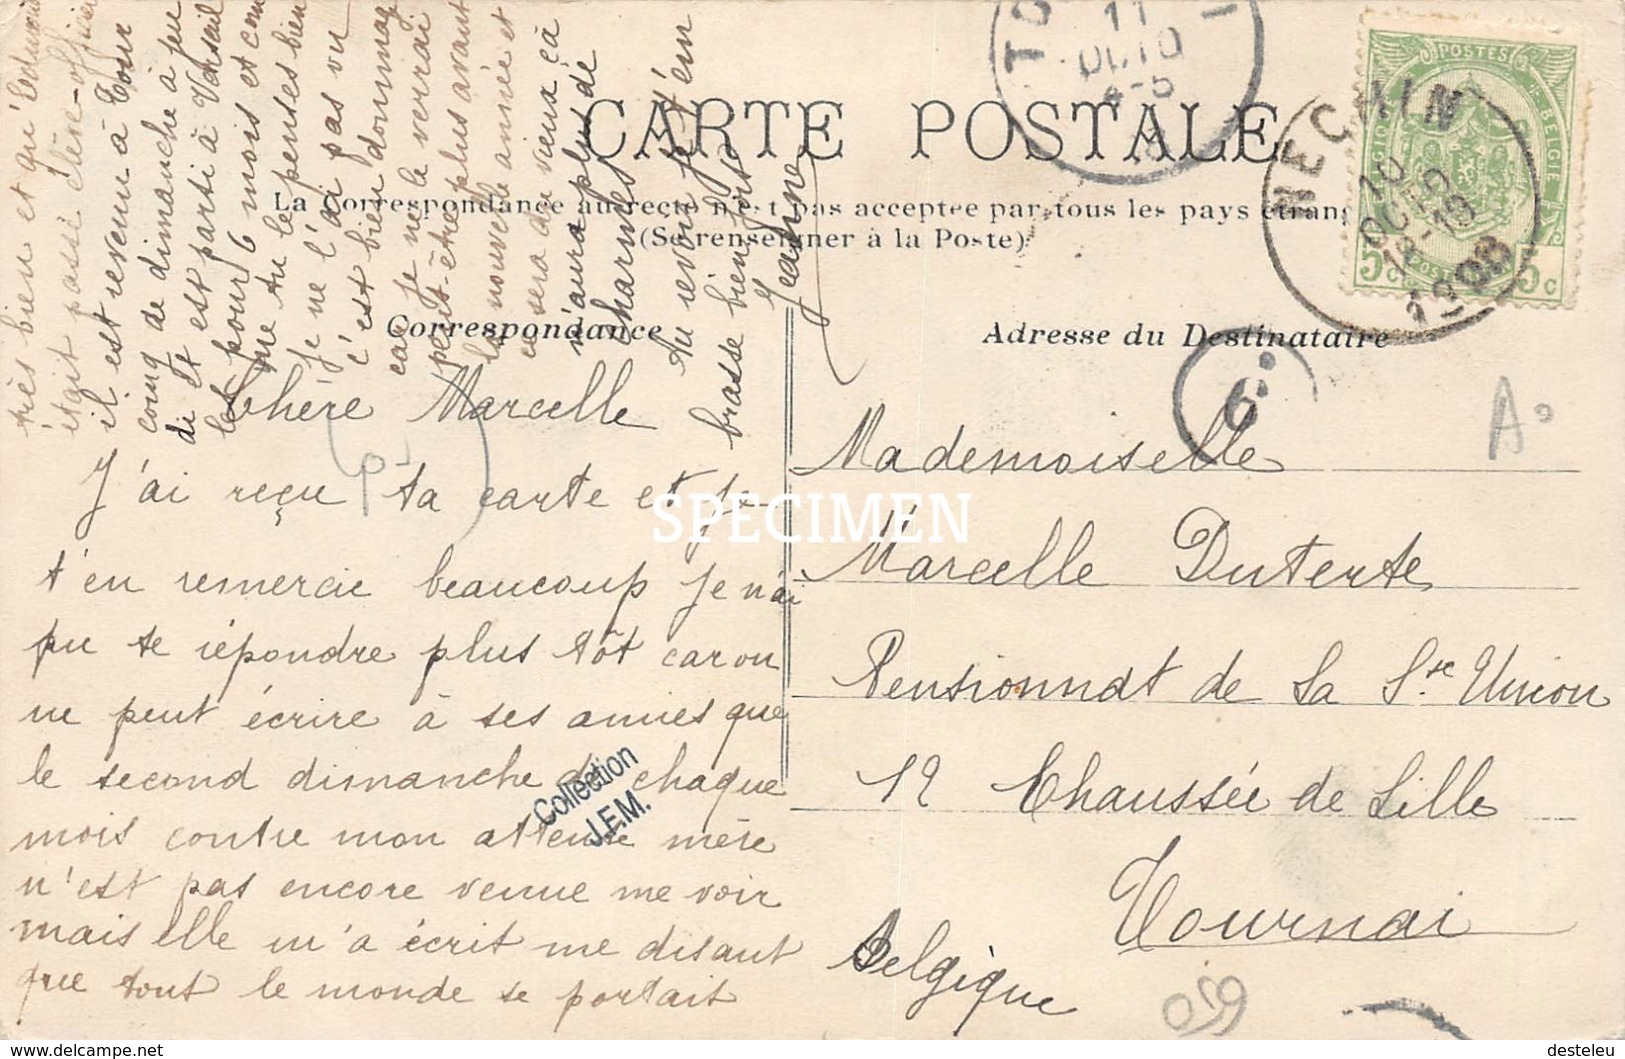 CARTE POSTALE
La Correspondance au recto n'est pas acceptée par tous les pays étrang
(Se renseigner à la Poste)
Correspondance
Adresse du Destinataire
POSTES
BELGIQUE
BELGIE
5c
5c
NECHIN
10
OCTO
18-19
1908
TO
11
OCTO
6
Chère Marcelle
J'ai reçu ta carte et je
t'en remercie beaucoup Je n'ai
pu te répondre plus tôt car on
ne peut écrire à ses amies que
le second dimanche de chaque
mois contre mon attente mère
n'est pas encore venue me voir
mais elle m'a écrit me disant
que tout le monde se portait
très bien et qu'Edmond
était passé élève-officier
il est revenu à Tour
coing de dimanche à jeu
di et est parti à Versail
les pour 6 mois et com
me tu le penses bien
je ne l'ai pas vu
c'est bien dommage
car je ne le verrai
peut-être plus avant
la nouvelle année et
ce sera un vieux çà
n'aura plus de
charmes
Au revoir je t'em
brasse bien fort
Jeanne
Mademoiselle
Marcelle Duterte
Pensionnat de La Ste Union
12 Chaussée de Lille
Tournai
Belgique
SPECIMEN
Collection
J.E.M.
delcampe.net
desteleu